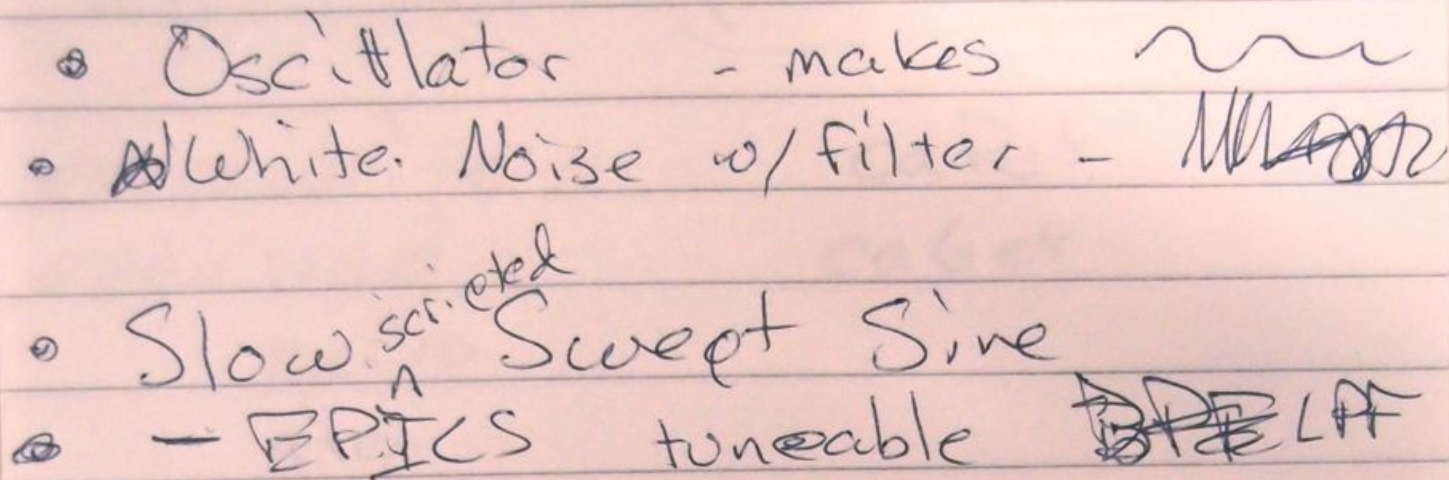 • Oscillator - makes
• White Noise w/ filter -
• Slow scripted Swept Sine
• - EPICS tuneable LPF